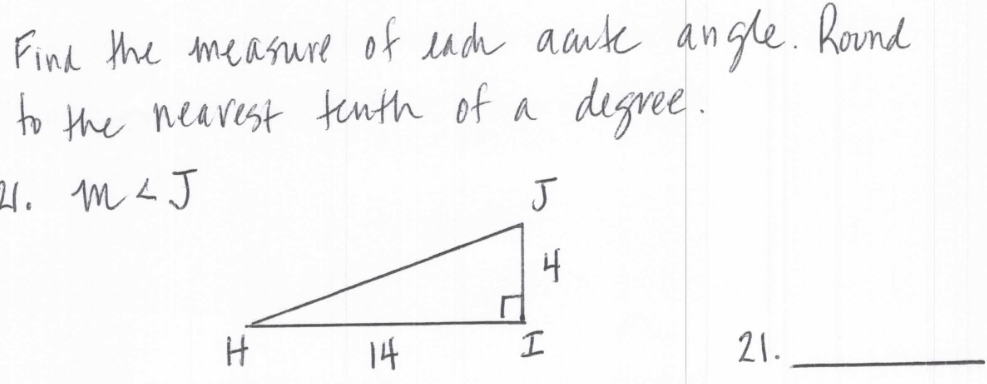 Find the measure of each acute angle. Round
to the nearest tenth of a degree.
21. m∠J
J
4
H 14 I
21. ________